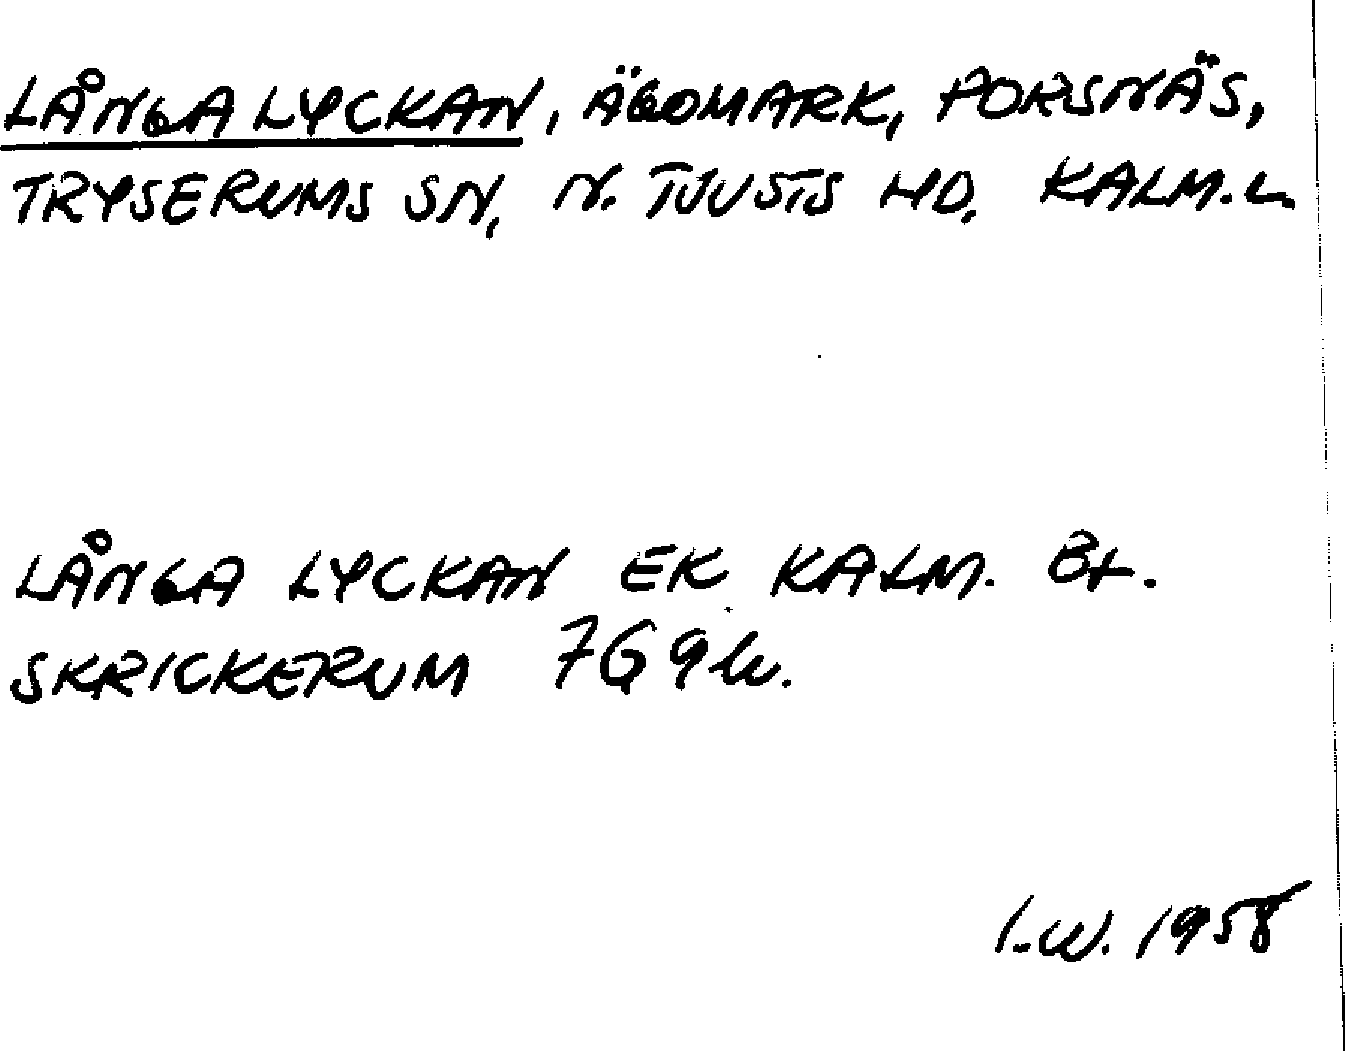 LÅNGA LYCKAN, ÄGOMARK, PORSNÄS,
TRYSERUMS SN, N. TJUSTS HD, KALM. L.
LÅNGA LYCKAN EK KALM. BL.
SKRICKERUM 7G 9h.
I.W. 1958